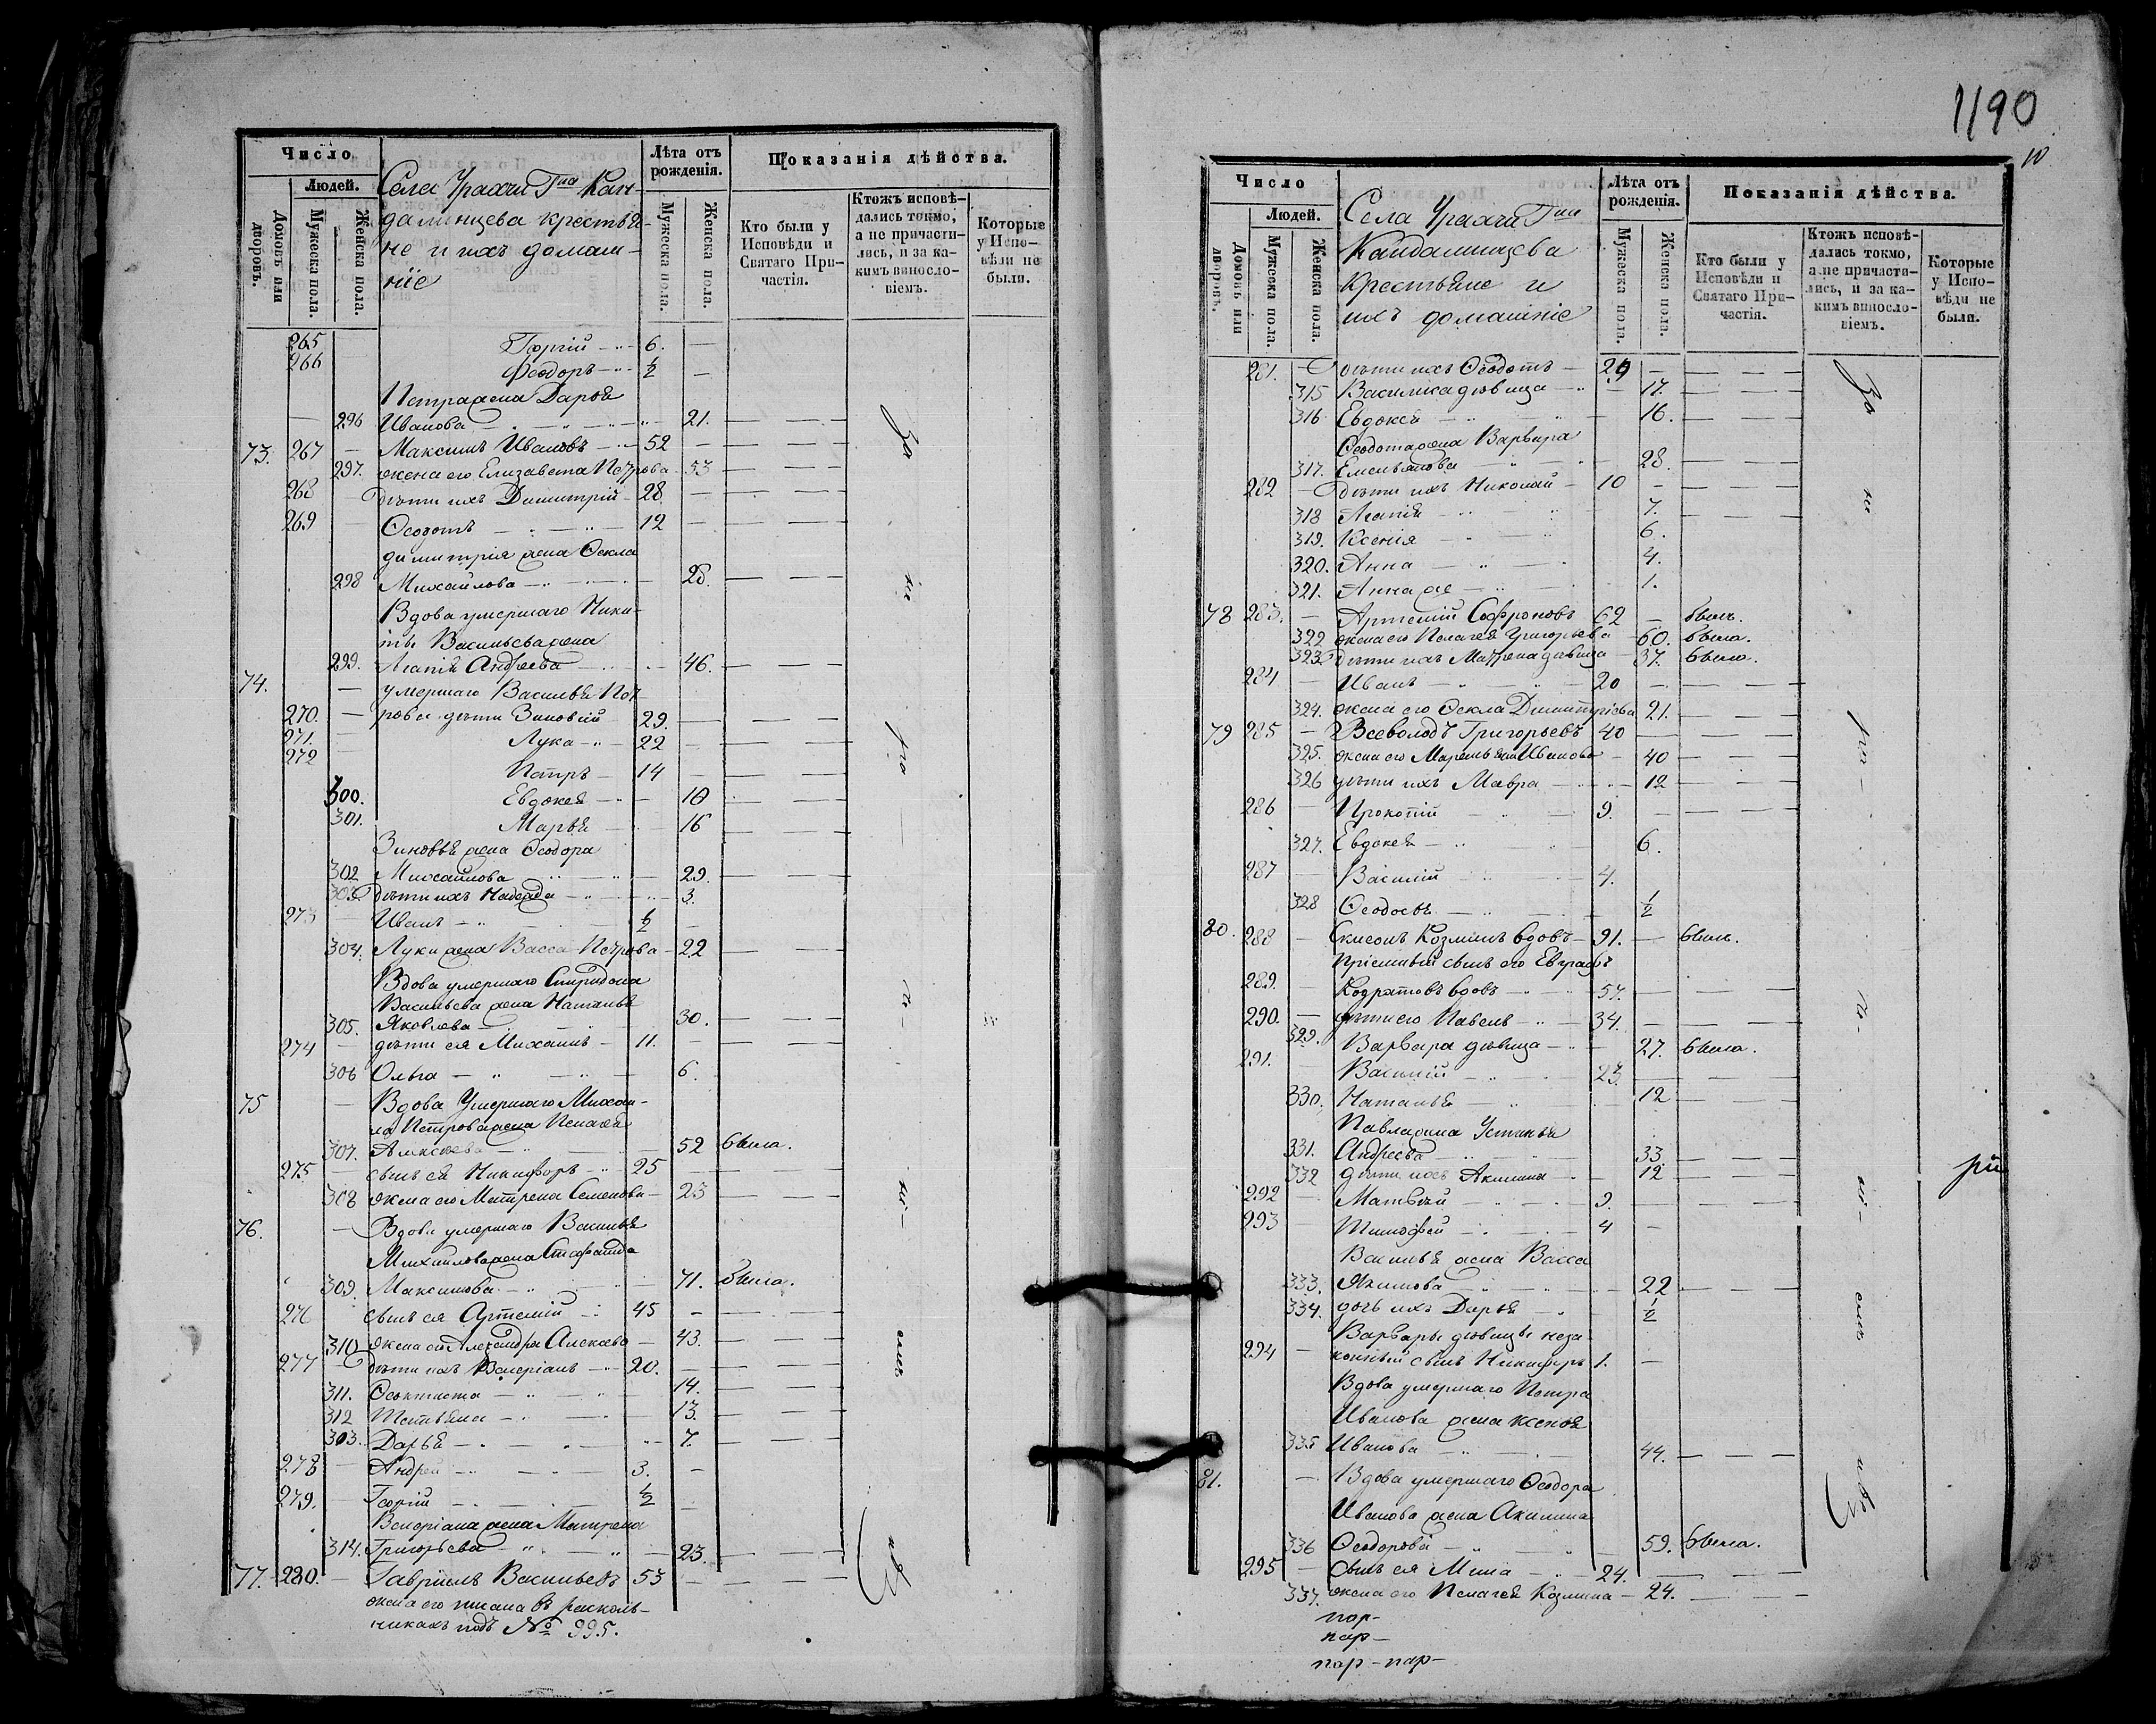 Число
Людей.
Домовъ или дворовъ.
Мужеска пола.
Женска пола.
Села Гна Кан-
далинцева крестья-
не и ихъ домаш-
ніе
Лѣта отъ рожденія.
Мужеска пола.
Женска пола.
Показанія дѣйства.
Кто были у Исповѣди и Святаго Причастія.
Ктожъ исповѣ-
дались токмо,
а не причасти-
лись, и за ка-
кимъ винословіемъ.
Которые у Испо-
вѣди не были.
265 — Георгій — 6. —
266 Ѳеодоръ — ½ —
Петра жена Дарья
— 296 Иванова — 21.
73. 267 — Максимъ Ивановъ — 52 —
297. жена его Елизавета Петрова — 53
268 — дѣти ихъ Димитрій — 28 —
269 — Ѳеодотъ — 12 —
димитрія жена Ѳекла
298 Михайлова — 28.
Вдова умершаго Ники-
ты Васильева жена
299. Агапія Андреева — 46.
74. — умершаго Василья Пет-
270. — рова дѣти Зиновій 29. —
271. — Лука — 22 —
272 Петръ — 14 —
300. Евдокея — 18
301. Марья — 16
Зиновья жена Ѳеодора
302 Михайлова — 29.
303 дѣти ихъ Надежда — 3.
273 — Иванъ — ½ —
304. Луки жена Васса Петрова — 22
Вдова умершаго Спиридона
Васильева жена Наталья
305. Яковлева — 30.
274 — дѣти ея Михаилъ — 11. —
306 Ольга — 6.
75 — Вдова Умершаго Михаи-
ла Петрова жена Пелагея
307. Алексѣева — 52 была.
275 — сынъ ея Никифоръ — 25 —
308 жена его Матрена Семенова — 23
76. — Вдова умершаго Василья
Михайлова жена Стефанида
309. Максимова — 71. была.
276 сынъ ея Артемій — 45 —
310 жена его Александра Алексѣева — 43.
277 — дѣти ихъ Валеріанъ — 20. —
311. Ѳеоктиста — 14.
312 Татьяна — 13.
303. Дарья — 7.
278 — Андрей — 3. —
279. — Георгій — ½ —
Валеріана жена Матрена
314. Григорьева — 23.
77. 280. — Гавріилъ Васильевъ 53 —
жена его писана въ расколь-
никахъ подъ № 995.
За
не

1190
10
Число
Людей.
Домовъ или дворовъ.
Мужеска пола.
Женска пола.
Села Гна
Кандалинцева
Крестьяне и
ихъ домашніе
Лѣта отъ рожденія.
Мужеска пола.
Женска пола.
Показанія дѣйства.
Кто были у Исповѣди и Святаго Причастія.
Ктожъ исповѣ-
дались токмо,
а не причасти-
лись, и за ка-
кимъ винословіемъ.
Которые у Испо-
вѣди не были.
281. — дѣти ихъ Ѳеодотъ — 29 —
315 Василиса дѣвица — 17.
316 Евдокея — 16.
Ѳеодота жена Варвара
317. Емельянова — 28.
282 — дѣти ихъ Николай — 10 —
318 Агапія — 7.
319. Ксенія — 6.
320. Анна — 4.
321. Анна же — 1.
78 283. — Артемій Софроновъ 62 — былъ.
322 жена его Пелагея Григорьева — 60. была.
323 дѣти ихъ Матрена дѣвица — 37. была.
284 — Иванъ — 20 —
324. жена его Ѳекла Димитріева 21.
79 285 — Всеволодъ Григорьевъ 40
325. жена его Маремьяна Иванова — 40
326 дѣти ихъ Мавра — 12
286 — Прокопій — 9. —
327. Евдокея — 6.
287 — Василій — 4.
328 Ѳеодосья — ½
80. 288 — Козминъ вдовъ — 91. — былъ.
пріемный сынъ его Евграфъ
289. — Кодратовъ вдовъ — 57.
290. — дѣти его Павелъ — 34. —
329. Варвара дѣвица — 27. была.
291. — Василій — 23.
330. Наталья — 12
Павла жена Устинья
331. Андреева — 33
332 дѣти ихъ Акилина — 12
292 — Матвѣй — 9.
293 — Тимофей — 4 —
Василья жена Васса
333. Якимова — 22
334. дочь ихъ Дарья — ½
Варвары дѣвицы неза-
294 — конный сынъ Никифоръ 1. —
Вдова умершаго Петра
Иванова жена Ксенья
335 Иванова — 44.
81. — Вдова умершаго Ѳеодора
Иванова жена Акилина
336 Ѳеодорова — 59. была.
295 — сынъ ея Мина — 24.
337. жена его Пелагея Козмина — 24.
За
не
пар-
пар-
пар-пар-